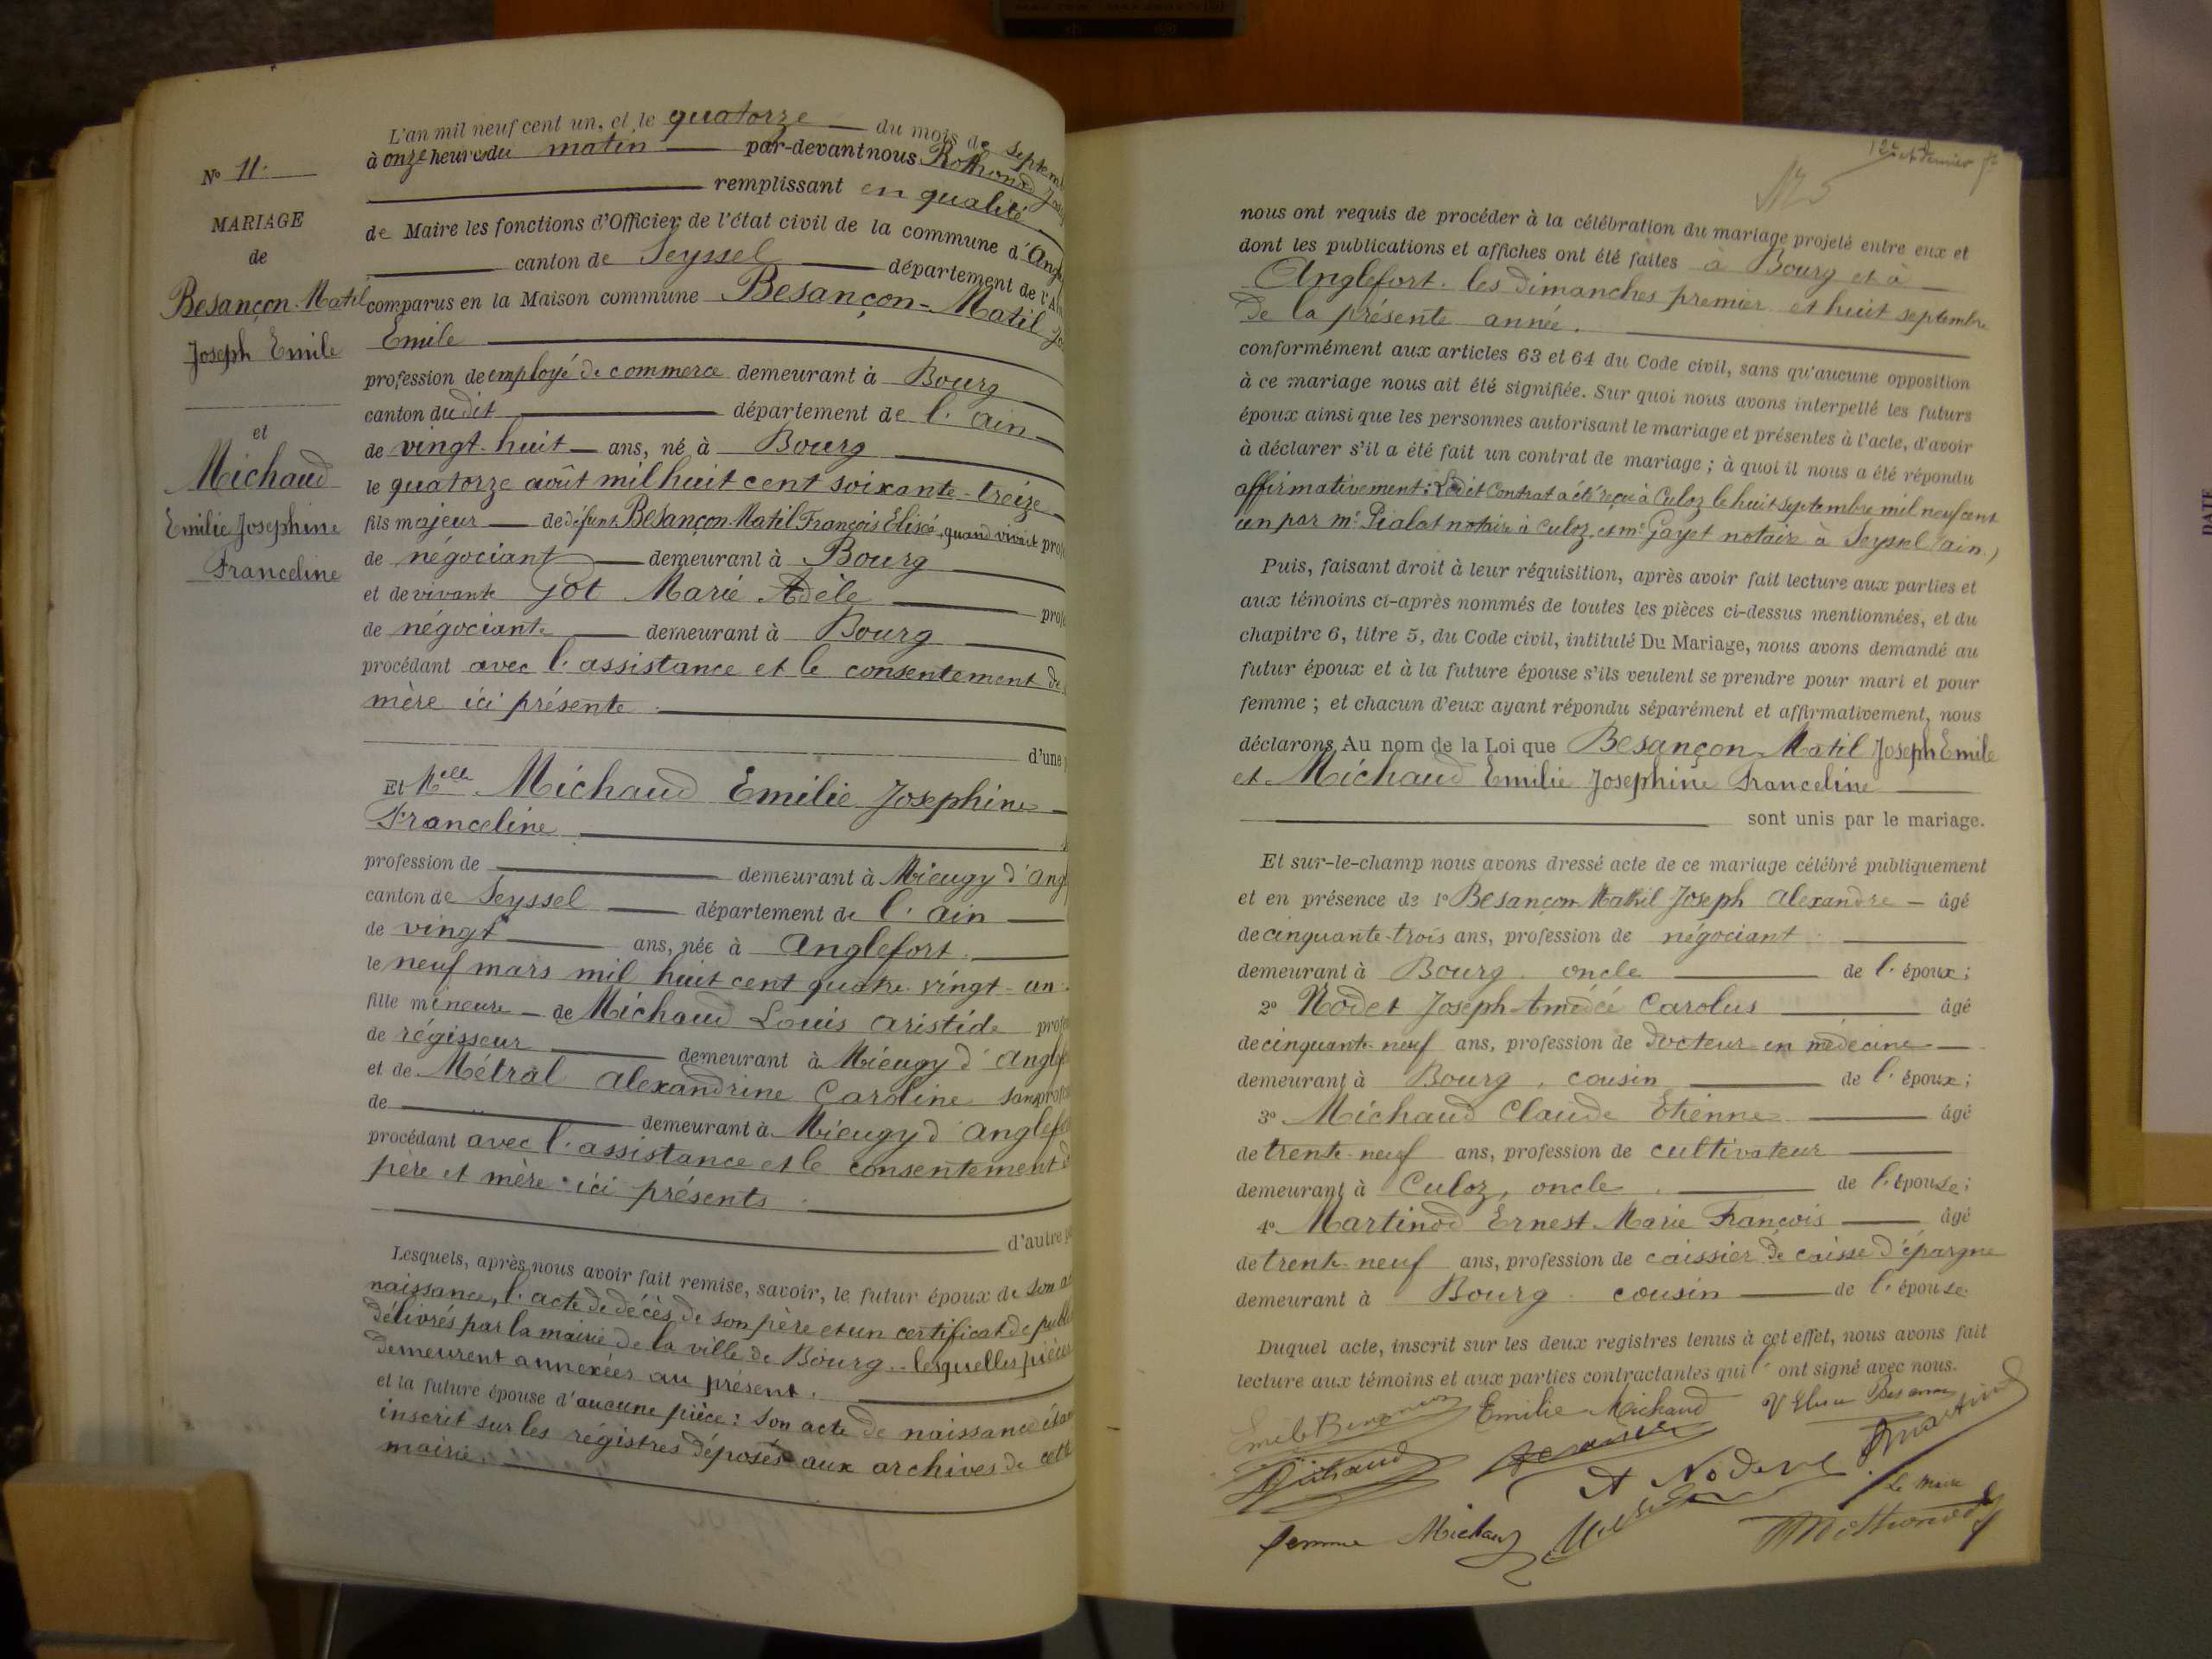 N° 11.
MARIAGE
de
Besançon-Matil
Joseph Emile
et
Michaud
Emilie Josephine
Franceline
L'an mil neuf cent un, et le quatorze du mois de septem
à onze heures du matin par-devant nous Rothonod
remplissant en qualité
de Maire les fonctions d'Officier de l'état civil de la commune d'Ang
canton de Seyssel département de l'A
comparus en la Maison commune Besançon-Matil Jo
Emile
profession de employé de commerce demeurant à Bourg
canton du dit département de l'ain
de vingt-huit ans, né à Bourg
le quatorze août mil huit cent soixante-treize
fils majeur de défunt Besançon-Matil François Elisée, quand vivait prof
de négociant demeurant à Bourg
et de vivante Got Marie Adèle prof
de négociante demeurant à Bourg
procédant avec l'assistance et le consentement de
mère ici présente.
d'une p
Et Melle Michaud Emilie Josephine
Franceline
profession de demeurant à Mieugy d'ang
canton de Seyssel département de l'ain
de vingt ans, née à anglefort.
le neuf mars mil huit cent quatre-vingt-un.
fille mineure de Michaud Louis aristide prof
de régisseur demeurant à Mieugy d'anglef
et de Métral alexandrine Caroline sans profes
de demeurant à Mieugy d'anglef
procédant avec l'assistance et le consentement d
père et mère ici présents.
d'autre p
Lesquels, après nous avoir fait remise, savoir, le futur époux de son a
naissance, l'acte de décès de son père et un certificat de publi
délivrés par la mairie de la ville de Bourg. lesquelles pièces
demeurent annexées au présent.
et la future épouse d'aucune pièce : son acte de naissance étan
inscrit sur les régistres déposés aux archives de cett
mairie.
nous ont requis de procéder à la célébration du mariage projeté entre eux et
dont les publications et affiches ont été faites à Bourg et à
Anglefort. les dimanches premier et huit septembre
de la présente année.
conformément aux articles 63 et 64 du Code civil, sans qu'aucune opposition
à ce mariage nous ait été signifiée. Sur quoi nous avons interpellé les futurs
époux ainsi que les personnes autorisant le mariage et présentes à l'acte, d'avoir
à déclarer s'il a été fait un contrat de mariage ; à quoi il nous a été répondu
affirmativement : Ledit Contrat a été reçu à Culoz le huit septembre mil neuf cent
un par me Pialat notaire à Culoz, et me Gayet notaire à Seyssel (ain.)
Puis, faisant droit à leur réquisition, après avoir fait lecture aux parties et
aux témoins ci-après nommés de toutes les pièces ci-dessus mentionnées, et du
chapitre 6, titre 5, du Code civil, intitulé Du Mariage, nous avons demandé au
futur époux et à la future épouse s'ils veulent se prendre pour mari et pour
femme ; et chacun d'eux ayant répondu séparément et affirmativement, nous
déclarons Au nom de la Loi que Besançon-Matil Joseph Emile
et Michaud Emilie Josephine Franceline
sont unis par le mariage.
Et sur-le-champ nous avons dressé acte de ce mariage célébré publiquement
et en présence de 1° Besançon-Mathil Joseph Alexandre âgé
de cinquante-trois ans, profession de négociant
demeurant à Bourg. oncle de l'époux ;
2° Nodet Joseph-Amédée Carolus âgé
de cinquante-neuf ans, profession de Docteur en médecine
demeurant à Bourg, cousin de l'époux ;
3° Michaud Claude Etienne âgé
de trente-neuf ans, profession de cultivateur
demeurant à Culoz, oncle de l'épouse ;
4° Martinod Ernest Marie François âgé
de trente-neuf ans, profession de caissier de caisse d'épargne
demeurant à Bourg. cousin de l'épouse.
Duquel acte, inscrit sur les deux registres tenus à cet effet, nous avons fait
lecture aux témoins et aux parties contractantes qui ont signé avec nous.
Emilie Michaud
Michaud
A Nodet
Le maire
femme Michaud